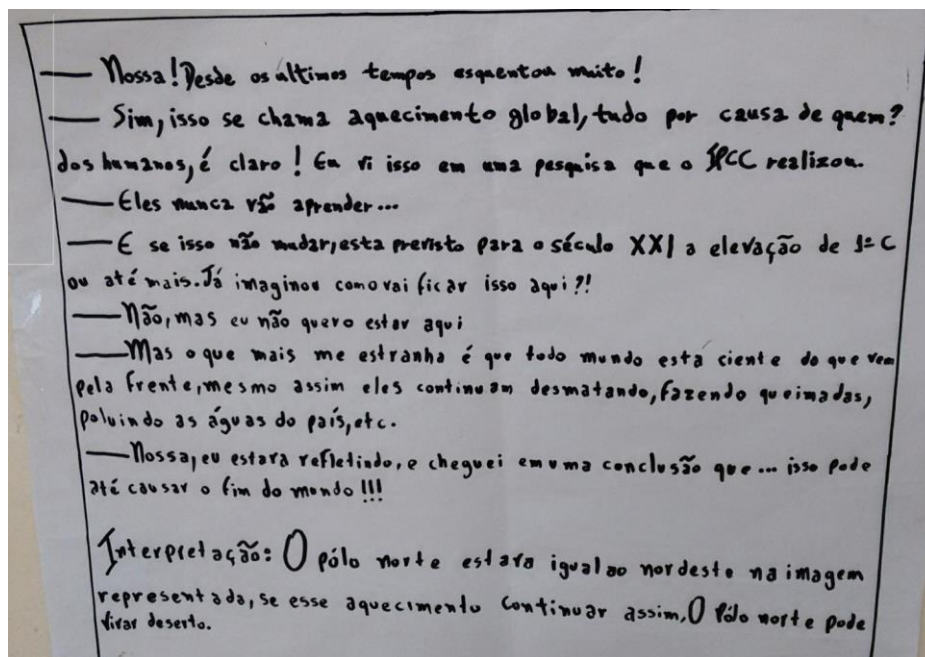 — Nossa! Desde os ultimos tempos esquentou muito!
— Sim, isso se chama aquecimento global, tudo por causa de quem?
dos humanos, é claro! Eu vi isso em uma pesquisa que o IPCC realizou.
— Eles nunca vão aprender...
— E se isso não mudar, esta previsto para o século XXI a elevação de 1º C
ou até mais. Já imaginou como vai ficar isso aqui?!
— Não, mas eu não quero estar aqui
— Mas o que mais me estranha é que todo mundo está ciente do que vem
pela frente, mesmo assim eles continuam desmatando, fazendo queimadas,
poluindo as águas do país, etc.
— Nossa, eu estava refletindo, e cheguei em uma conclusão que... isso pode
até causar o fim do mundo!!!
Interpretação: O pólo norte estava igual ao nordeste na imagem
representada, se esse aquecimento continuar assim, O Pólo norte pode
virar deserto.